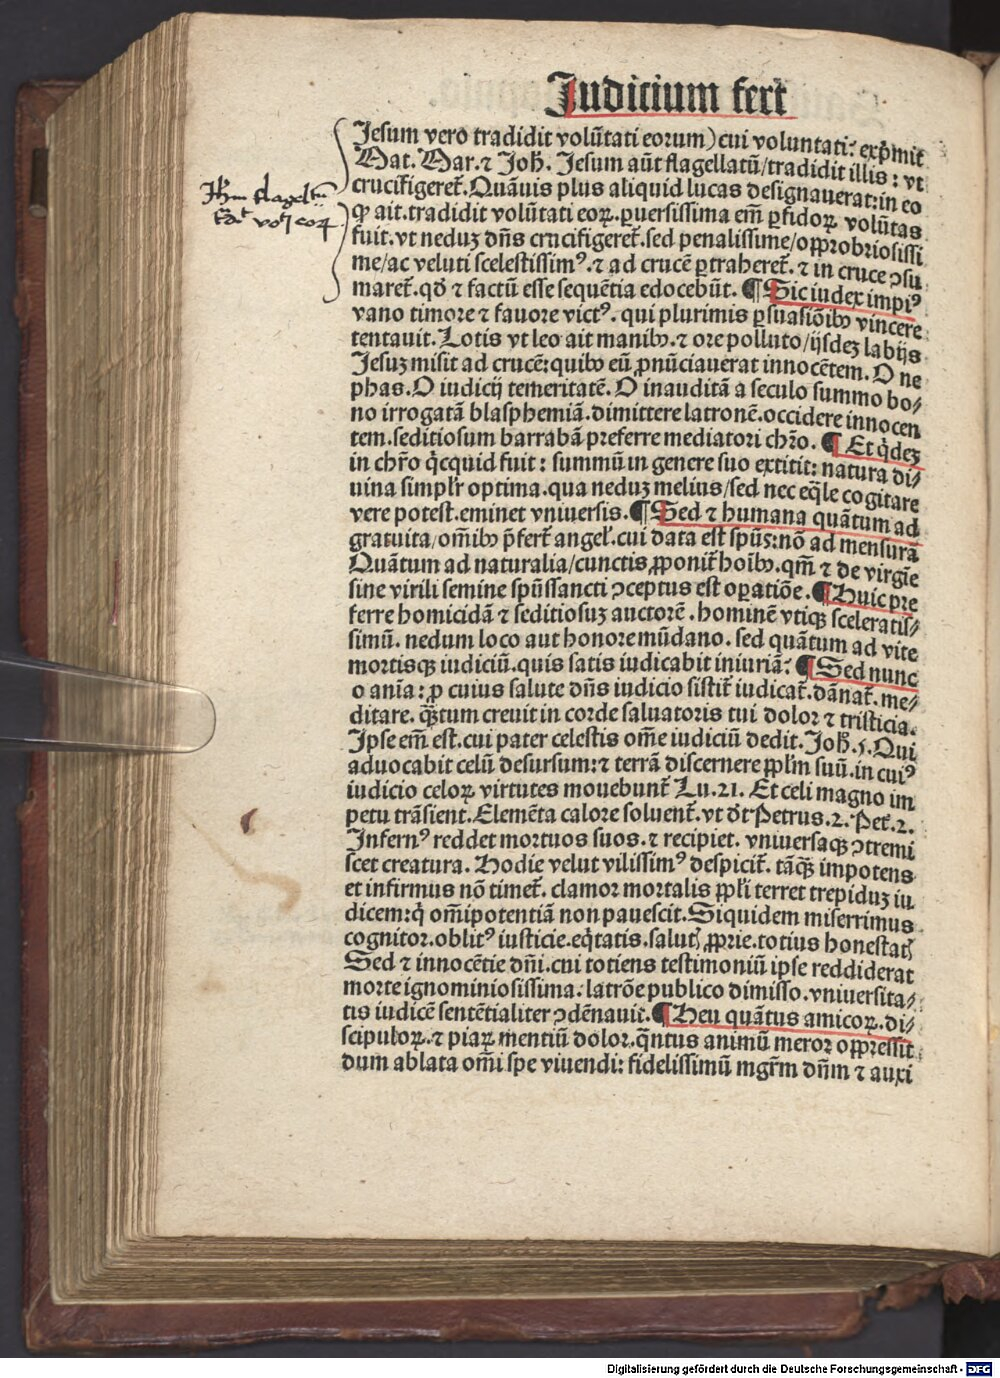 Judicium fert̃
Jesum vero tradidit volũtati eorum) cui voluntati: exp̃mit
Mat. Mar. ⁊ Joh̃. Jesum aũt flagellatũ/tradidit illis: vt
crucifigeret̃. Quãuis plus aliquid lucas designauerat: in eo
ꝙ ait. tradidit volũtati eoꝝ. ꝑuersissima em̃ ꝑfidoꝝ voluñtas
fuit. vt neduꝫ dñs crucifigeret̃. sed penalissime/opprobriosissi
me/ac veluti scelestissimꝰ. ⁊ ad crucẽ ꝑtraheret̃. ⁊ in cruce ꝯsu
maret̃. qđ ⁊ factũ esse sequẽtia edocebũt. ¶ Sic iudex impiꝰ
vano timore ⁊ fauore victꝰ. qui plurimis ꝑsuasiõibꝰ vincere
tentauit. Lotis vt leo ait manibꝰ. ⁊ ore polluto/ijsdeꝫ labijs
Jesuꝫ misit ad crucẽ: quibꝰ eũ ꝓnũciauerat innocẽtem. O ne
phas. O iudicij temeritatẽ. O inauditã a seculo summo bo⸗
no irrogatã blasphemiã. dimittere latronẽ. occidere innocen
tem. seditiosum barrabã preferre mediatori chr̃o. ¶ Et q̇deꝫ
in chr̃o q̇cquid fuit: summũ in genere suo extitit: natura di⸗
uina simplr̃ optima. qua neduꝫ melius/sed nec eq̃le cogitare
vere potest. eminet vniuersis. ¶ Sed ⁊ humana quãtum ad
gratuita/om̃ibꝰ p̃fert̃ angel̃. cui data est spũs: nõ ad mensurã
Quãtum ad naturalia/cunctis ꝓponit̃ hoĩbꝰ. qm̃ ⁊ de virgĩe
sine virili semine spũssancti ꝯceptus est oꝑatiõe. ¶ Huic pre
ferre homicidã ⁊ seditiosuꝫ auctorẽ. hominẽ vtiqꝫ sceleratis⸗
simũ. nedum loco aut honore mũdano. sed quãtum ad vite
mortisqꝫ iudiciũ. quis satis iudicabit iniuriã: ¶ Sed nunc
o anĩa: ꝓ cuius salute dñs iudicio sistit̃ iudicat̃. dãnat̃. me⸗
ditare. q̃ꝫtum creuit in corde saluatoris tui dolor ⁊ tristicia.
Ipse em̃ est. cui pater celestis om̃e iudiciũ dedit. Joh̃. 5. Qui
aduocabit celũ desursum: ⁊ terrã discernere pplm̃ suũ. in cuiꝰ
iudicio celoꝝ virtutes mouebunt̃ Lu. 21. Et celi magno im
petu trãsient. Elemẽta calore soluent̃. vt dt̃ Petrus. 2. Pet̃. 2.
Infernꝰ reddet mortuos suos. ⁊ recipiet. vniuersaqꝫ ꝯtremi
scet creatura. Hodie velut vilissimꝰ despicit̃. tãqꝫ impotens
et infirmus nõ timet̃. clamor mortalis ppl̃i terret trepiduꝫ iu
dicem: q̇ om̃ipotentiã non pauescit. Siquidem miserrimus
cognitor. oblitꝰ iusticie. eq̇tatis. saluꝭ ꝓprie. totius honestaꝭ
Sed ⁊ innocẽtie dñi. cui totiens testimoniũ ipse reddiderat
morte ignominiosissima: latrõe publico dimisso. vniuersita⸗
tis iudicẽ sentẽtialiter ꝯdẽnauit. ¶ Heu quãtus amicoꝝ. di⸗
scipuloꝝ. ⁊ piaꝝ mentiũ dolor. q̃ntus animũ meror oppressit
dum ablata om̃i spe viuendi: fidelissimũ mgr̃m dñm ⁊ auxi
Digitalisierung gefördert durch die Deutsche Forschungsgemeinschaft - DFG